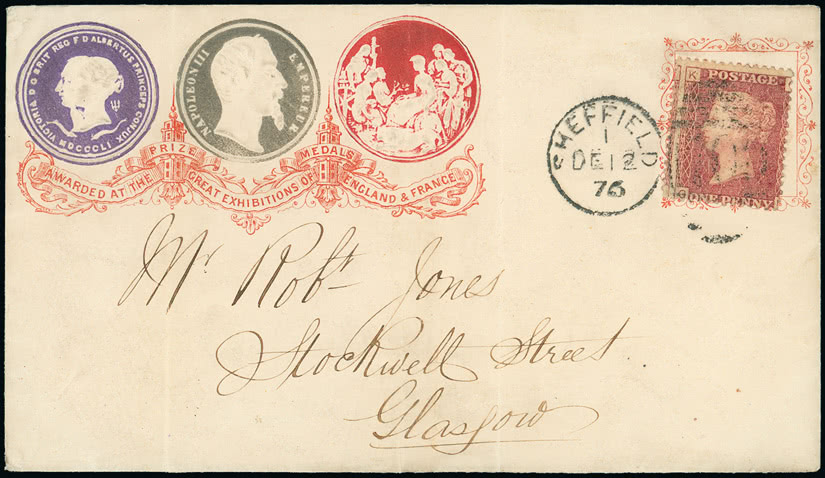 VICTORIA D G BRIT REG F D ALBERTUS PRINCEPS CONJUX
MDCCCLI
NAPOLEON III EMPEREUR
PRIZE MEDALS
AWARDED AT THE GREAT EXHIBITIONS OF ENGLAND & FRANCE
SHEFFIELD
1
DE 12
76
K
POSTAGE
ONE PENNY
Mr Robt Jones
Stockwell Street
Glasgow